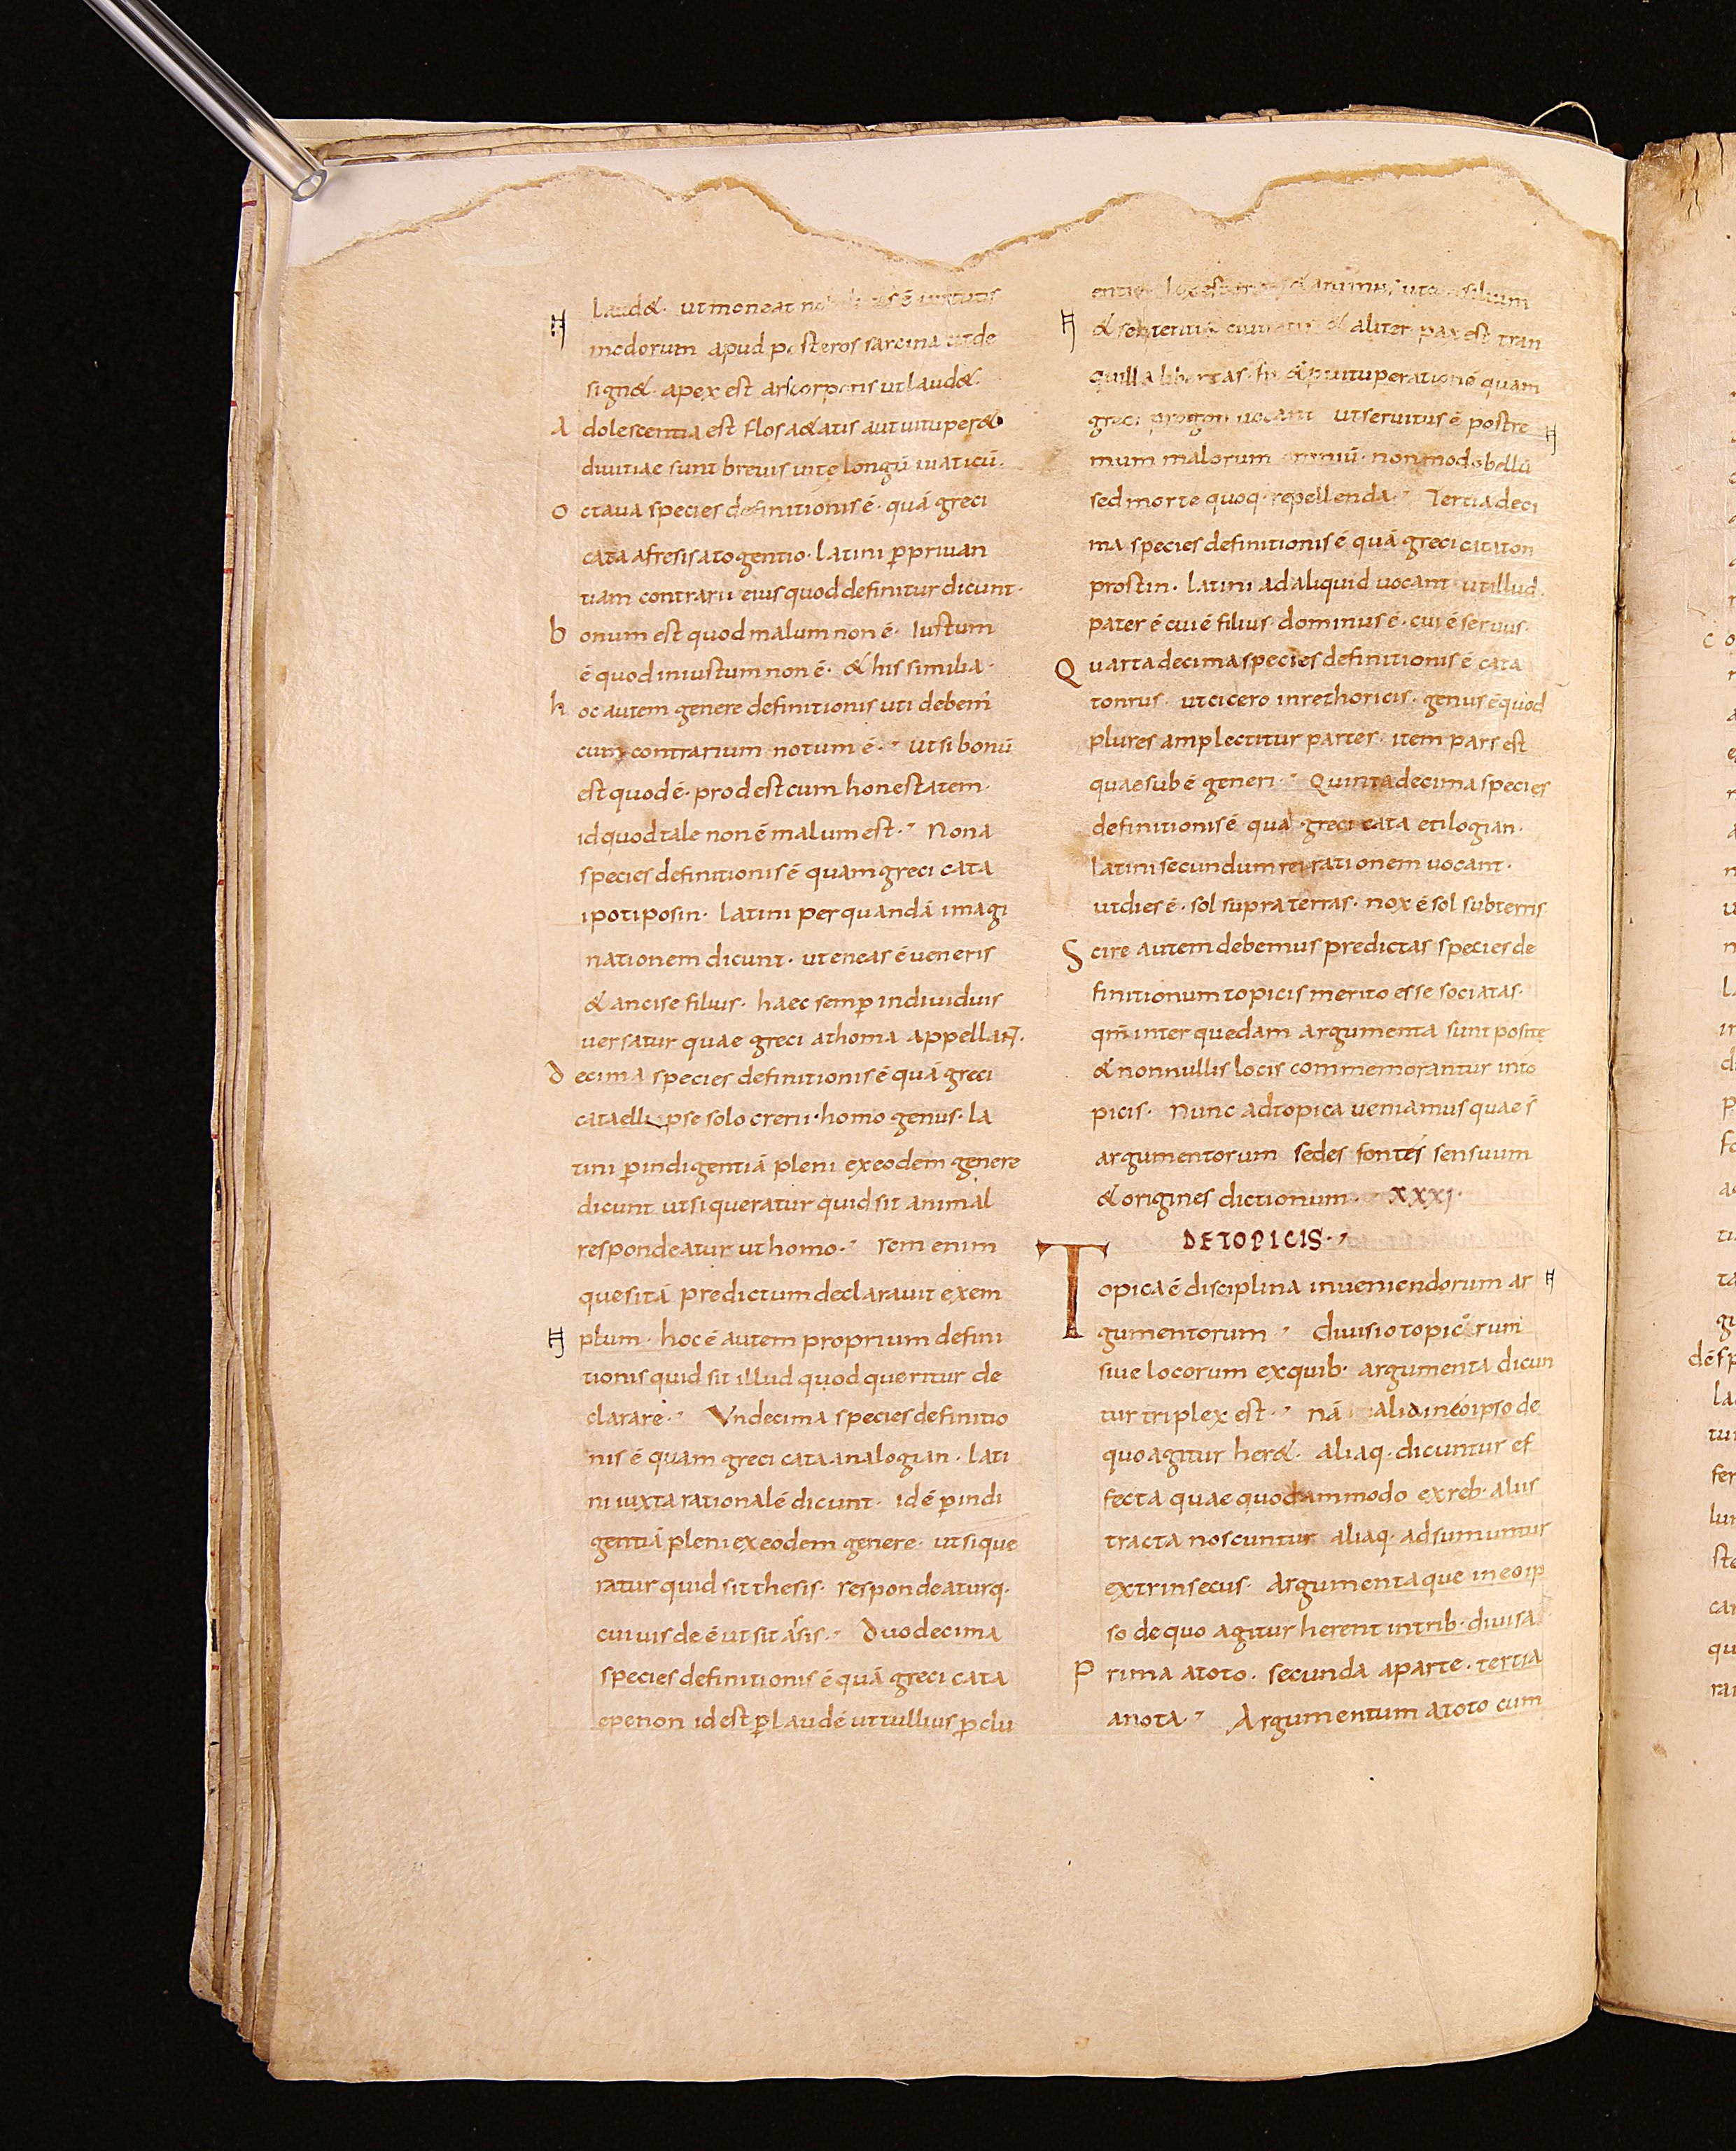 laud&. ut moneat
modorum apud posteros sarcina ut de
sign&. apex est arscorporis ut laud&.
Adolescentia est flos a&atis aut uituper&
diuitiae sunt breuis uitę longū uiaticū.
octaua species definitionis ē. quā greci
cata afresis atogentio. latini ꝑpriuan
tiam contrarii eius quod definitur dicunt.
bonum est quod malum non ē. Iustum
ē quod iniustum non ē. & his similia.
hoc autem genere definitionis uti debem'
cum contrarium notum ē. ut si bonū
est quod ē. prodest cum honestatem.
id quod tale non ē malum est. Nona
species definitionis ē quam greci cata
ipotiposin. latini per quandā imagi
nationem dicunt. ut eneas ē ueneris
& ancise filius. haec semꝑ indiuiduis
uersatur quae greci athoma appellant.
decima species definitionis ē quā greci
cataellipse solo crerii. homo genus. la
tini ꝑindigentiā pleni ex eodem genere
dicunt ut si queratur quid sit animal
respondeatur ut homo. rem enim
quesitā predictum declarauit exem
plum. hoc ē autem proprium defini
tionis quid sit illud quod queritur de
clarare. Vndecima species definitio
nis ē quam greci cata analogian. lati
ni iuxta rationalē dicunt. id ē ꝑindi
gentiā pleni ex eodem genere. ut si que
ratur quid sit thesis. respondeaturq.
cuiuis de ē ut sit Duodecima
species definitionis ē quā greci cata
epenon id est ꝑlaudē ut tullius ꝑclu
& animus ut consilium
& sententia ciuitatis & aliter pax est tran
quilla libertas. fit & ꝑuituperationē quam
greci uocant ut seruitus ē postre
mum malorum omniū. non modo bellū
sed morte quoq. repellenda. Tertiadeci
ma species definitionis ē quā greci cataton
prostin. latini ad aliquid uocant ut illud.
pater ē cui ē filius. dominus ē. cui ē seruus.
Quartadecima species definitionis ē cata
tonrus. ut cicero in rethoricis. genus ē quod
plures amplectitur partes. item pars est
quae sub ē generi. Quintadecima species
definitionis ē quā greci cata etilogian.
latini secundum rei rationem uocant.
ut dies ē. sol supra terras. nox ē sol sub terris
Scire autem debemus predictas species de
finitionum topicis merito esse sociatas.
qm̄ inter quedam argumenta sunt positę
& nonnullis locis commemorantur in to
picis. Nunc ad topica ueniamus quae s̄
argumentorum sedes fontes sensuum
& origines dictionum. XXXI.
DE TOPICIS.
Topica ē disciplina inueniendorum ar
gumentorum. diuisio topicorum
siue locorum ex quib. argumenta dicun
tur triplex est. nā alia in eo ipso de
quo agitur her&. aliaq. dicuntur ef
fecta quae quodammodo ex reb. aliis
tracta noscuntur aliaq. adsumuntur
extrinsecus. argumenta que in eo ip
so de quo agitur herent in trib. diuisa.
Prima atoto. secunda aparte. tertia
anota. Argumentum atoto cum